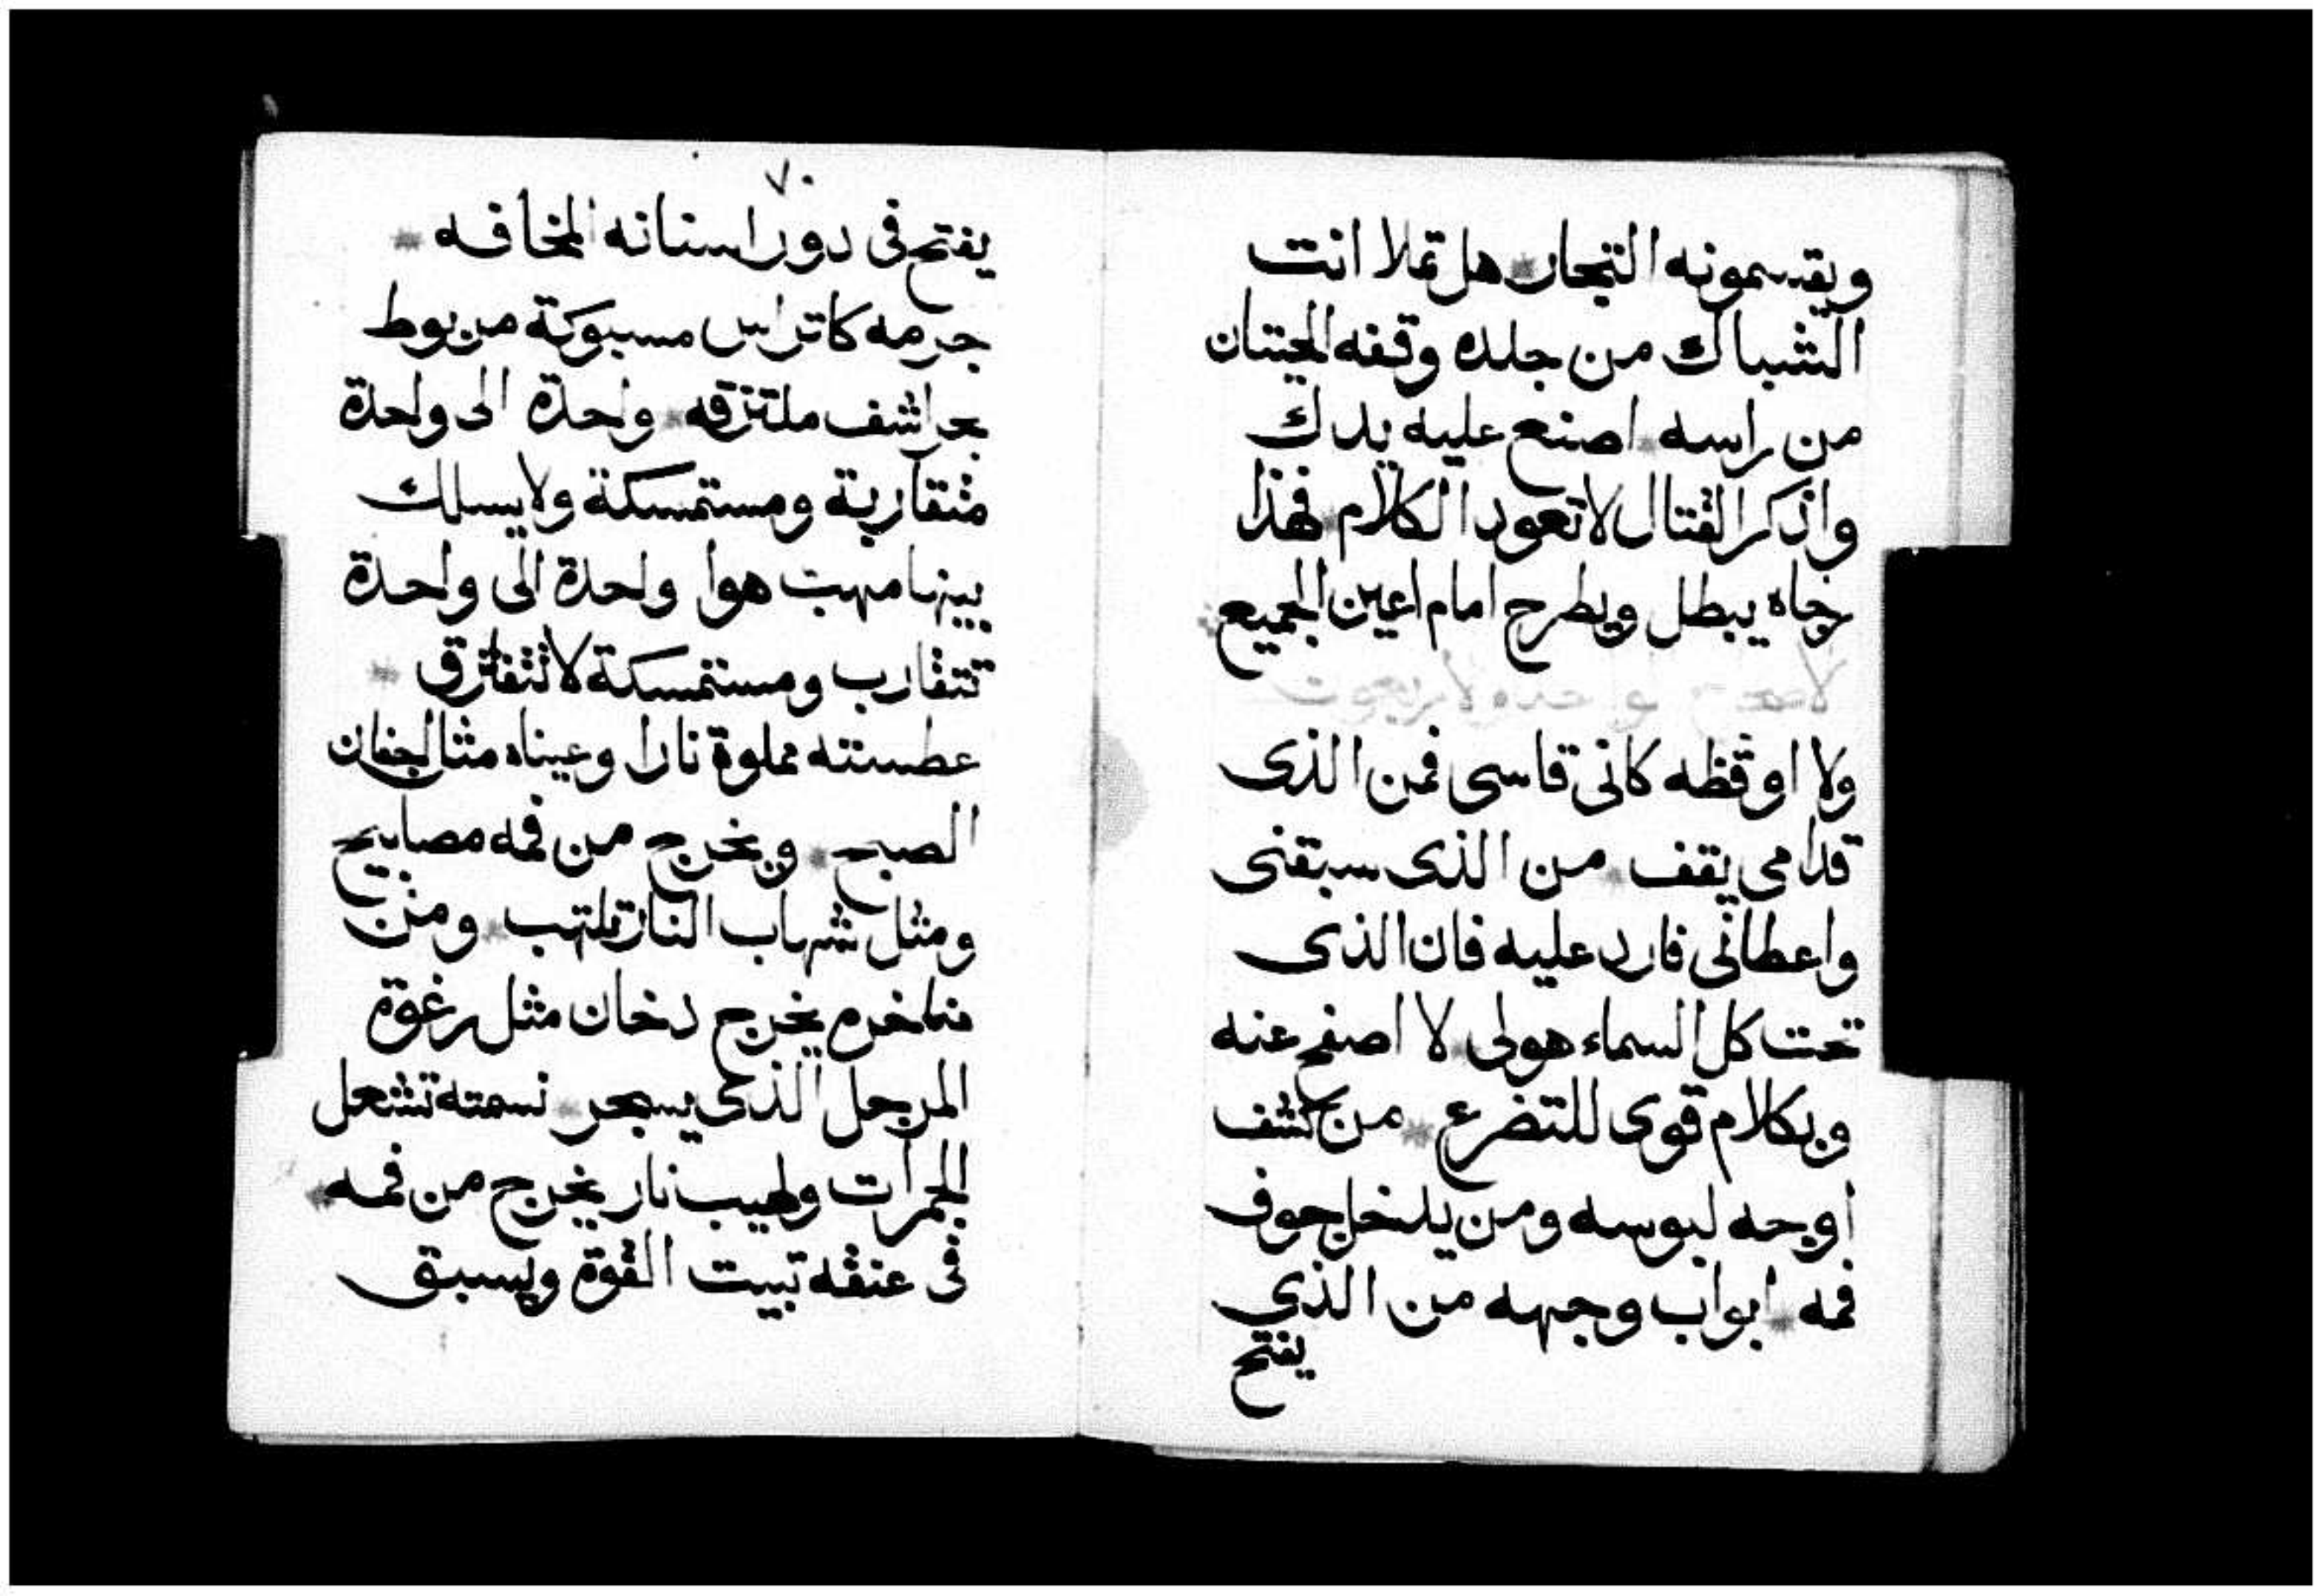 ويقسمونه التجار هل تملا انت
الشباك من جلده وقفه الحيتان
من راسه اصنع عليه يدك
واذكر القتال لا تعود الكلام فهذا
رجاه يبطل ويطرح امام اعين الجميع
ولا اوقظه كانى قاسى فمن الذى
قدامى يقف من الذى سبقنى
واعطانى فارد عليه فان الذى
تحت كل السماء هو لى لا اصفح عنه
وبكلام قوى للتضرع من كشف
اوجه لبوسه ومن يدخل جوف
فمه ابواب وجهه من الذى
يفتح
٧٠
يفتح فى دور اسنانه المخافه
جرمه كاتراس مسبوكة مربوط
بحراشف ملتزقه واحدة الى واحدة
متقاربة ومستمسكة ولا يسلك
بينها مهب هوا واحدة الى واحدة
تتقارب ومستمسكة لا تتفترق
عطسته مملوة نارا وعيناه مثل اجفان
الصبح ويخرج من فمه مصابيح
ومثل شهاب النار تلتهب ومن
مناخره يخرج دخان مثل رغوة
المرجل الذى يسجر نسمته تشعل
الجمرات ولهيب نار يخرج من فمه
فى عنقه تبيت القوة ويسبق